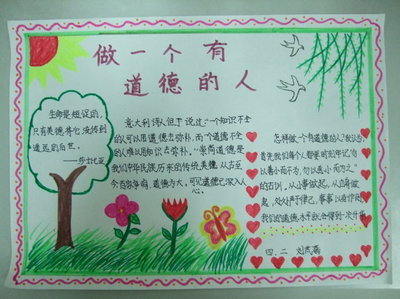 做一个有
道德的人
生命是短促的,
只有美德将它流传到
遥远的后世.
——莎士比亚
意大利诗人但丁说过:"一个知识不全
的人可以用道德去弥补,而一个道德不全
的人难以用知识去弥补."崇尚道德是
我们中华民族历来的传统美德,从古至
今百余年间,道德为大,可见道德已深入人
心.
怎样做一个有道德的人?我认为,
首先我们每个人都要时刻牢记"勿
以善小而不为,勿以恶小而为之"
的古训,从小事做起,从自身做
起,处处严于律己,事事以
我们的道德水平就会得到一次升华.
四.二